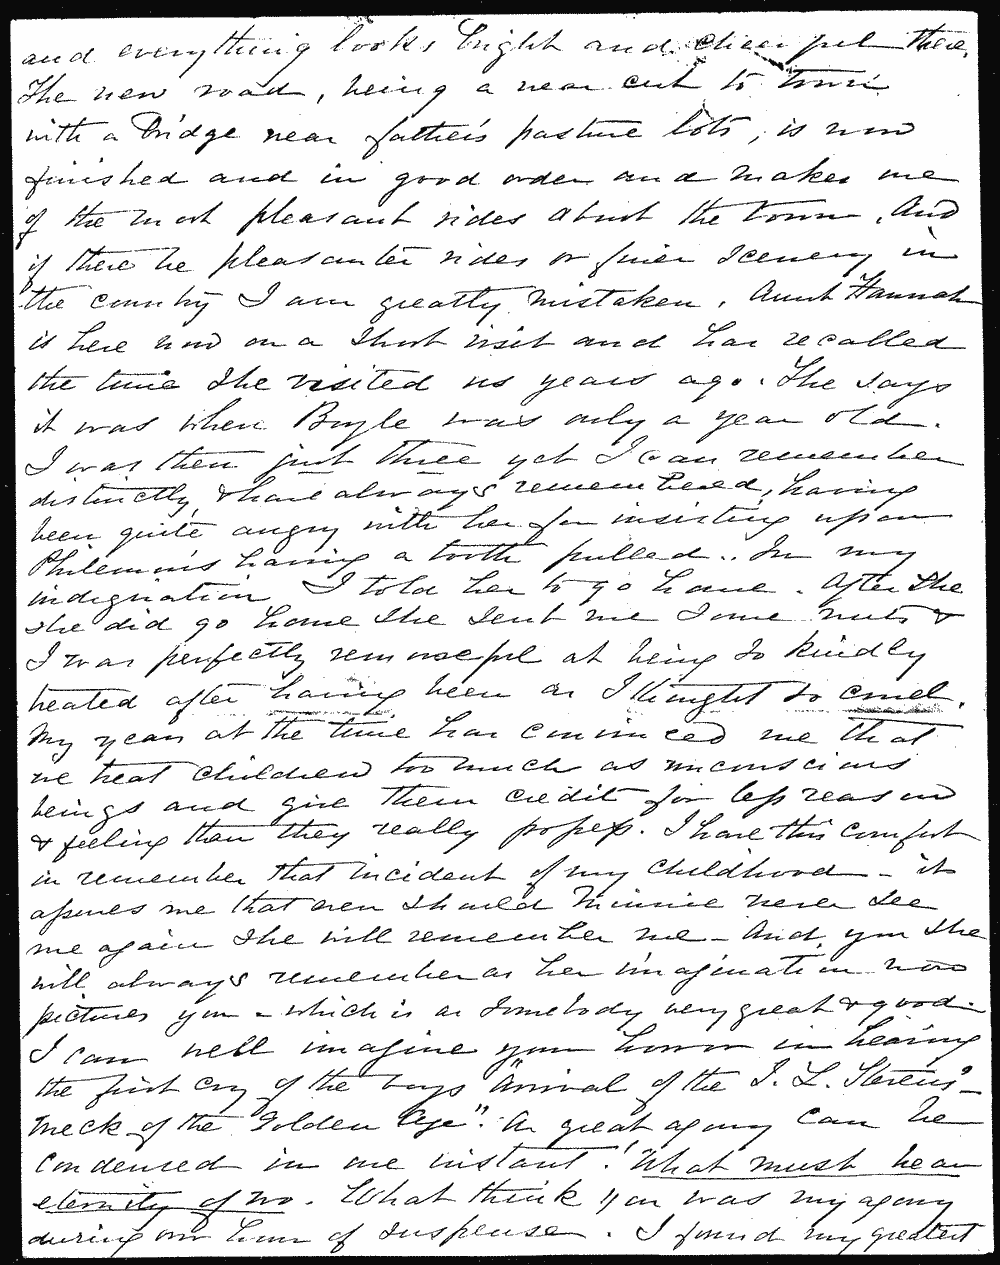 and everything looks bright and cheerful there.
The new road, being a near cut to town
with a Bridge near father's pasture lots, is now
finished and in good order and makes one
of the most pleasant rides about the town. And
if there be pleasanter rides or finer scenery in
the country I am greatly mistaken. Aunt Hannah
is here now on a short visit and has recalled
the time she visited us years ago. She says
it was when Boyle was only a year old.
I was then just three yet I can remember
distinctly, & have always remembered, having
been quite angry with her for insisting upon
Philemon's having a tooth pulled.. In my
indignation I told her to go home. After she
she did go home she sent me some nuts &
I was perfectly remorseful at being so kindly
treated after having been as I thought so cruel.
My years at the time has convinced me that
we treat children too much as unconscious
beings and give them credit for less reason
& feeling than they really possess. I have this comfort
in remember that incident of my childhood - it
assures me that even should Minnie never see
me again she will remember me - And, you she
will always remember as her imagination now
pictures you - which is as somebody very great & good.
I can well imagine your horror in hearing
the first cry of the boys "Arrival of the I. L. Stevens -
wreck of the Golden Age". An great agony can be
condensed in one instant! What must be an
eternity of wo. What think you was my agony
during our hour of suspense. I found my greatest